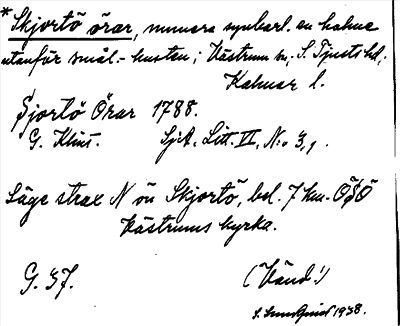 * Skjortö örar, numera synbarl. en holme
utanför smål.-kusten; Västrum sn; S. Tjusts hd;
Kalmar l.
Sjortö Örar 1788.
G. Klint. SjA. Litt. VI, N:o 3,1.
Läge strax N ön Skjortö, bel. 7 km. ÖSÖ
Västrums kyrka.
G. 37.
(Vänd!)
1938.